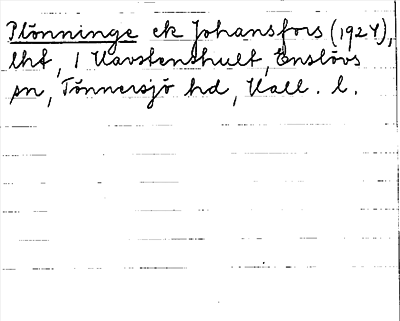 Plönninge ek Johansfors (1924),
lht, 1 Kavstenshult, Enslövs
sn, Tönnersjö hd, Hall. l.